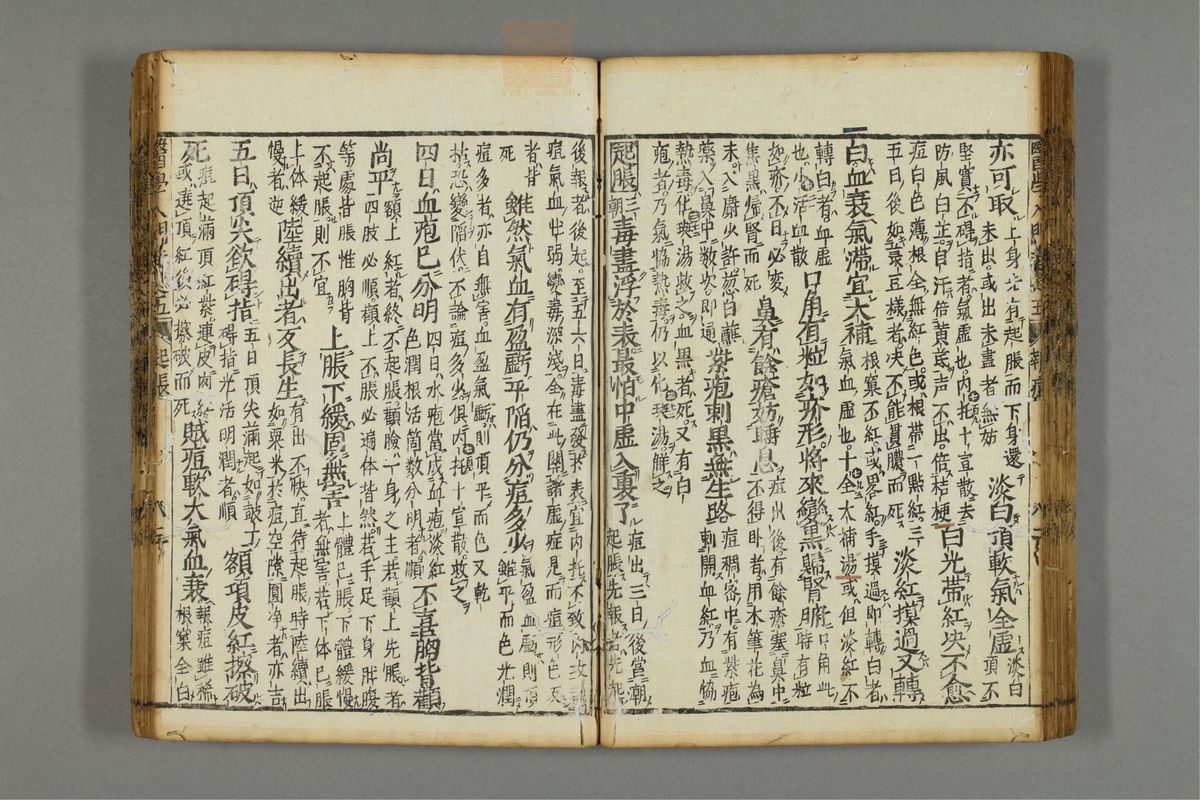 亦可取 上身先有起脹而下身還未出或出未盡者無妨 淡白頂軟氣全虛 淡白頂不
堅實不碍指者氣虛也内托十宣散去防風白芷自汗倍黄芪声不出倍桔梗 白光帶紅决不愈
痘白色薄根全無紅色或根帶一點紅三五日後如菉豆樣者决不能貫膿而死 淡紅摸過又轉
白血衰氣滯宜大補 根窠不紅或畧紅手摸過即轉白者氣血虛也十全大補湯或但淡紅不
轉白者血虛也小活血散 口角有粒如疥形將來變黒歸腎腑 口角此時有粒
如疥不日必変焦黒歸腎而死 鼻有餘瘡妨睡息 痘出後有餘瘡塞鼻中不得臥者用木筆花為
末入麝少許葱白蘸藥入鼻中數次即通 紫疱刺黒無生路 痘稠宻中有紫疱刺開血紅乃血恊
熱毒化班湯救之血黒者死又有白疱者乃氣恊熱毒仍以化班湯解之
起脹三朝毒盡浮於表最怕中虛入裏了 痘出三日後當潮起脹先報者先起
後報者後起至五六日毒盡發於表宜内托不致内攻
痘氣血壮弱變毒深淺全在此関諸虛症見而痘形色灰
者皆死 雖然氣血有盈虧平陷仍分痘多少 氣盈血虧則頂雖平而色光潤
痘多者亦自無害血盈氣虧則頂平而色又乾枯恐變陷伏不論痘多少俱内托十宣散救之
四日血疱已分明 四日水疱當成血疱淡紅色潤根活箇數分明者順 不喜胸背顴
尚平 額上紅者終不起脹顴臉一身之主若顴上先脹者四肢必順顴上不脹必遍体皆然若手足下身胖腹
等處皆脹惟胸背不起脹則不宜 上脹下緩固無害 上體已脹下體緩慢者無害若下体已脹
上体緩慢者逆 陸續出者反長生 有出不快直待起脹時陸續出如粟米於痘空隙圓浄者亦吉
五日頂尖欲碍指 五日頂尖滿起如皷丁碍指光活明潤者順 額頂皮紅擦破
死 痘起滿頂紅紫連皮肉或選頂紅後必擦破而死 賊痘軟大氣血衰 報痘雖稀根窠全白